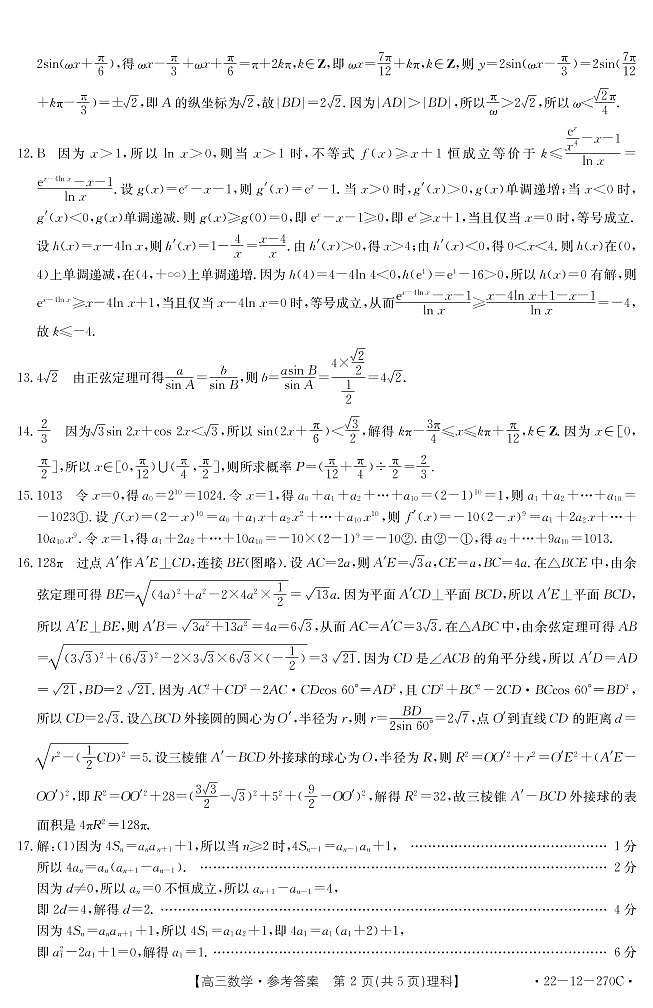 2sin(ωx+π/6),得 ωx−π/3+ωx+π/6=π+2kπ,k∈Z,即 ωx=7π/12+kπ,k∈Z,则 y=2sin(ωx−π/3)=2sin(7π/12
+kπ−π/3)=±√2,即 A 的纵坐标为√2,故|BD|=2√2.因为|AD|>|BD|,所以π/ω>2√2,所以 ω<√2π/4.
12.B 因为 x>1,所以 ln x>0,则当 x>1 时,不等式 f(x)≥x+1 恒成立等价于 k≤(e^x/x^4−x−1)/ln x=
(e^(x−4ln x)−x−1)/ln x.设 g(x)=e^x−x−1,则 g′(x)=e^x−1.当 x>0 时,g′(x)>0,g(x)单调递增;当 x<0 时,
g′(x)<0,g(x)单调递减.则 g(x)≥g(0)=0,即 e^x−x−1≥0,即 e^x≥x+1,当且仅当 x=0 时,等号成立.
设 h(x)=x−4ln x,则 h′(x)=1−4/x=(x−4)/x.由 h′(x)>0,得 x>4;由 h′(x)<0,得 0<x<4.则 h(x)在(0,
4)上单调递减,在(4,+∞)上单调递增.因为 h(4)=4−4ln 4<0,h(e^4)=e^4−16>0,所以 h(x)=0 有解,则
e^(x−4ln x)≥x−4ln x+1,当且仅当 x−4ln x=0 时,等号成立,从而(e^(x−4ln x)−x−1)/ln x≥(x−4ln x+1−x−1)/ln x=−4,
故 k≤−4.
13.4√2 由正弦定理可得a/sin A=b/sin B,则 b=asin B/sin A=(4×√2/2)/(1/2)=4√2.
14.2/3 因为√3sin 2x+cos 2x<√3,所以 sin(2x+π/6)<√3/2,解得 kπ−3π/4≤x≤kπ+π/12,k∈Z.因为 x∈[0,
π/2],所以 x∈[0,π/12)∪(π/4,π/2],则所求概率 P=(π/12+π/4)÷π/2=2/3.
15.1013 令 x=0,得 a₀=2¹⁰=1024.令 x=1,得 a₀+a₁+a₂+⋯+a₁₀=(2−1)¹⁰=1,则 a₁+a₂+⋯+a₁₀=
−1023①.设 f(x)=(2−x)¹⁰=a₀+a₁x+a₂x²+⋯+a₁₀x¹⁰,则 f′(x)=−10(2−x)⁹=a₁+2a₂x+⋯+
10a₁₀x⁹.令 x=1,得 a₁+2a₂+⋯+10a₁₀=−10×(2−1)⁹=−10②.由②−①,得 a₂+⋯+9a₁₀=1013.
16.128π 过点 A′作 A′E⊥CD,连接 BE(图略).设 AC=2a,则 A′E=√3a,CE=a,BC=4a.在△BCE 中,由余
弦定理可得 BE=√((4a)²+a²−2×4a²×1/2)=√13a.因为平面 A′CD⊥平面 BCD,所以 A′E⊥平面 BCD,
所以 A′E⊥BE,则 A′B=√(3a²+13a²)=4a=6√3,从而 AC=A′C=3√3.在△ABC 中,由余弦定理可得 AB
=√((3√3)²+(6√3)²−2×3√3×6√3×(−1/2))=3√21.因为 CD 是∠ACB 的角平分线,所以 A′D=AD
=√21,BD=2√21.因为 AC²+CD²−2AC·CDcos 60°=AD²,且 CD²+BC²−2CD·BCcos 60°=BD²,
所以 CD=2√3.设△BCD 外接圆的圆心为 O′,半径为 r,则 r=BD/2sin 60°=2√7,点 O′到直线 CD 的距离 d=
√(r²−(1/2CD)²)=5.设三棱锥 A′−BCD 外接球的球心为 O,半径为 R,则 R²=OO′²+r²=O′E²+(A′E−
OO′)²,即 R²=OO′²+28=(3√3/2−√3)²+5²+(9/2−OO′)²,解得 R²=32,故三棱锥 A′−BCD 外接球的表
面积是 4πR²=128π.
17.解:(1)因为 4Sₙ=aₙaₙ₊₁+1,所以当 n≥2 时,4Sₙ₋₁=aₙ₋₁aₙ+1, ⋯⋯ 1 分
所以 4aₙ=aₙ(aₙ₊₁−aₙ₋₁). ⋯⋯ 2 分
因为 d≠0,所以 aₙ=0 不恒成立,所以 aₙ₊₁−aₙ₋₁=4,
即 2d=4,解得 d=2. ⋯⋯ 4 分
因为 4Sₙ=aₙaₙ₊₁+1,所以 4S₁=a₁a₂+1,即 4a₁=a₁(a₁+2)+1,
即 a₁²−2a₁+1=0,解得 a₁=1. ⋯⋯ 6 分
【高三数学·参考答案 第 2 页(共 5 页)理科】 ·22−12−270C·